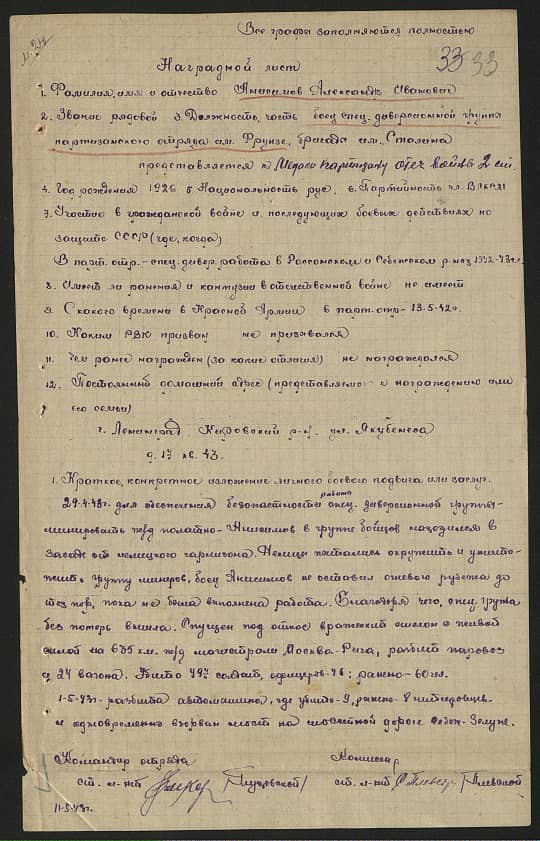 Все графы заполняются полностью
33 33
Наградной лист
1. Фамилия, имя и отчество Анисимов Александр Иванович
2. Звание рядовой 3. Должность, часть боец спец. диверсионной группы
партизанского отряда им. Фрунзе, бригады им. Сталина
представляется к Медали партизану отеч войны 2 ст.
4. Год рождения 1926 5 Национальность рус. 6. Партийность чл. ВЛКСМ
7. Участие в гражданской войне и последующих боевых действиях по
защите СССР (где, когда)
В парт. отр. - спец. дивер. работа в Россонском и Себежском р-нах 1942-43г.
8. Имеет ли ранения и контузии в отечественной войне не имеет
9. С какого времени в Красной Армии в парт. отр- 13.5.42г.
10. Каким РВК призван не призывался
11. Чем ранее награжден (за какие отличия) не награждался
12. Постоянный домашний адрес (представляемого к награждению или
его семьи)
г. Ленинград Кировский р-н. ул.
д. 17 кв. 43.
1. Краткое, конкретное изложение личного боевого подвига или заслуг.
29.4.43г. для обеспечения безопастности работы спец. диверсионной группы-
минировать ж/д полотно- Анисимов в группе бойцов находился в
засаде от немецкого гарнизона. Немцы пытались окружить и уничто-
жить группу минеров, боец Анисимов не оставил огневого рубежа до
тех пор, пока не была выполнена работа. Благодаря чего, спец. группа
без потерь вышла. Спущен под откос вражеский эшелон с живой
силой на 635 км. ж/д магистрали Москва-Рига, разбит паровоз
и 24 вагона. Убито солдат, офицеров- ранено-
1-5-43г. разбита автомашина, где убито-9, ранено-8 гитлеровцев
и одновременно взорван мост на шоссейной дороге
Командир отряда Комиссар
ст. л-нт ст. л-нт
11-5-43г.